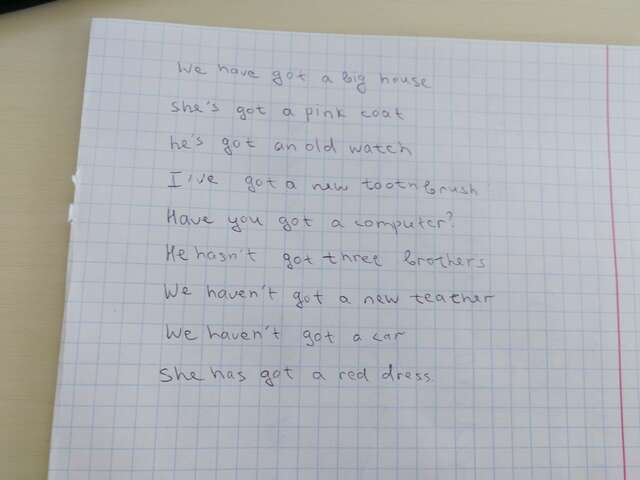 We have got a big house
She's got a pink coat
he's got an old watch
I've got a new toothbrush
Have you got a computer?
He hasn't got three brothers
We haven't got a new teather
We haven't got a car
She has got a red dress.